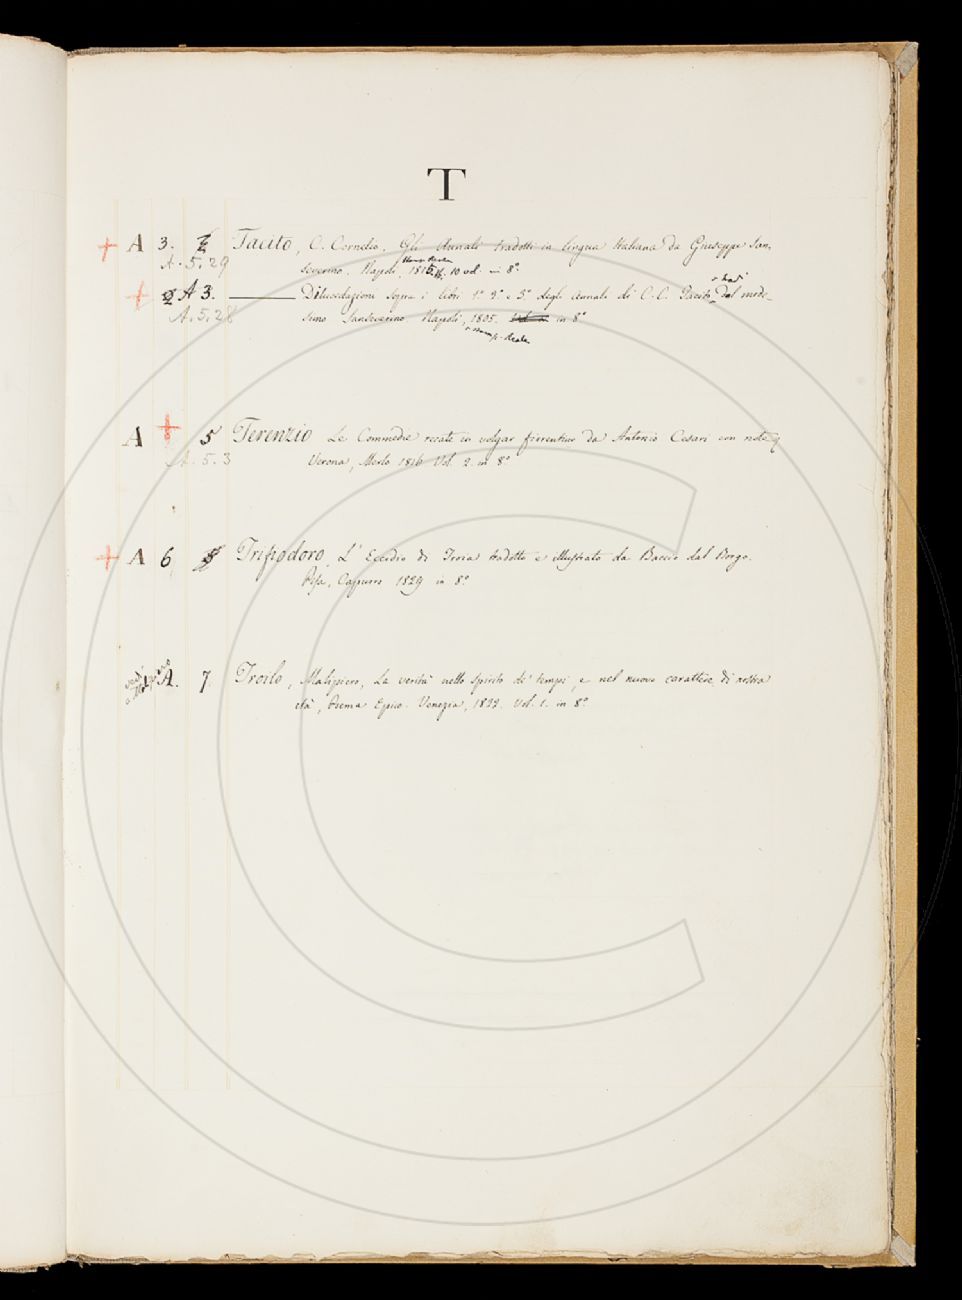 T
A 3. Tacito, C. Cornelio. Gli Annali tradotti in lingua Italiana da Giuseppe San-
A. 5. 29 severino. Napoli, Stamp. Reale 1816. 10 vol. in 8º
A 3. Dilucidazioni sopra i libri 1º 2º e 5º degli Annali di C. C. Tacito del mede-
A. 5. 28 simo Sanseverino. Napoli, 1805. in 8º
Stamp. Reale
A 5 Terenzio Le Commedie recate in volgar fiorentino da Antonio Cesari con note
A. 5. 3 Verona, Merlo 1816 Vol. 2. in 8º
A 6 Trifiodoro, L' Eccidio di Troia tradotto e illustrato da Baccio dal Borgo.
Pisa, Capurro 1829 in 8º
vedi a Malipiero
A. 7 Troilo, Malipiero, La verità nello spirito de' tempi, e nel nuovo carattere di nostra
età, Poema Epico. Venezia, 1822. Vol. 1. in 8º